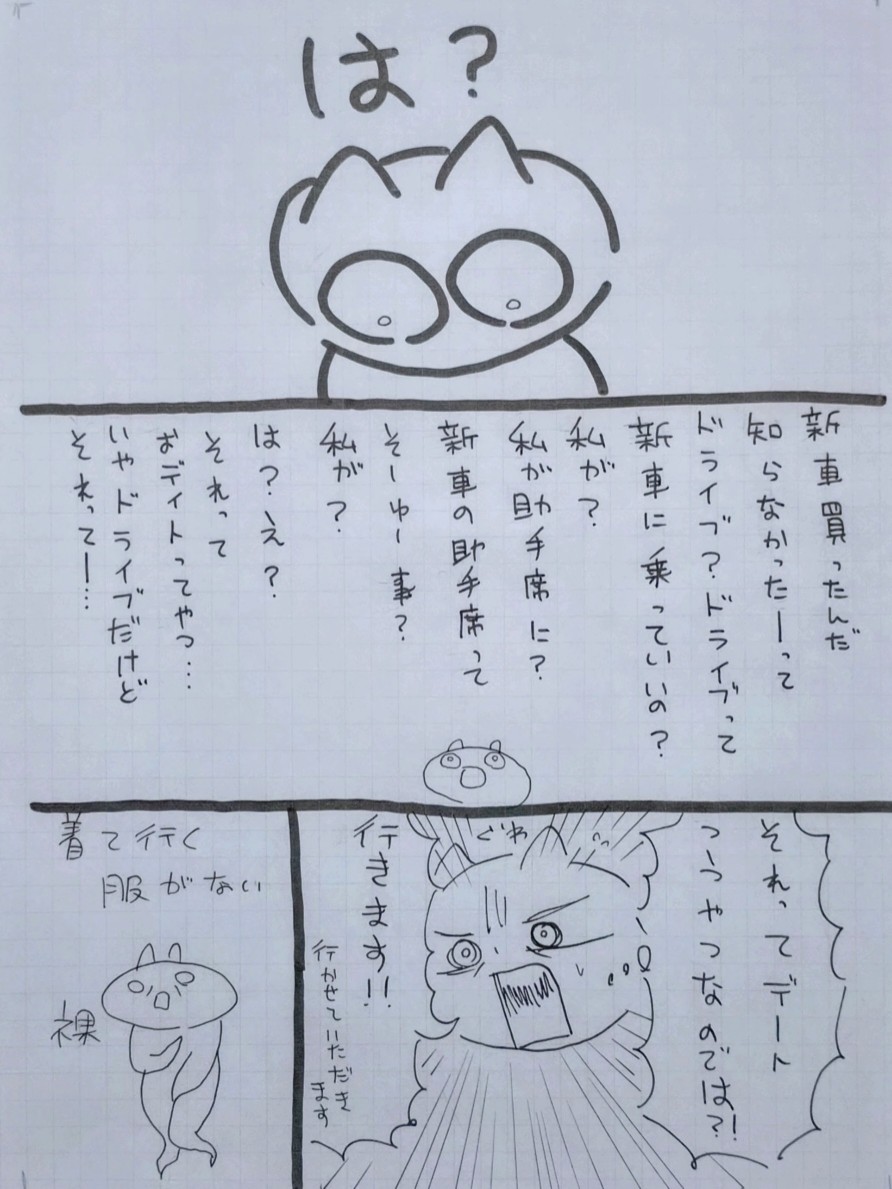 は？
新車買ったんだ
知らなかったーって
ドライブ？ドライブって
新車に乗っていいの？
私が？
私が助手席に？
新車の助手席って
そーゆー事？
私が？
は？え？
それって
おディトってやつ…
いやドライブだけど
それってー…
それってデート
つうやつなのでは？！
ぐわ
行きます！！
行かせていただき
ます
着て行く
服がない
裸